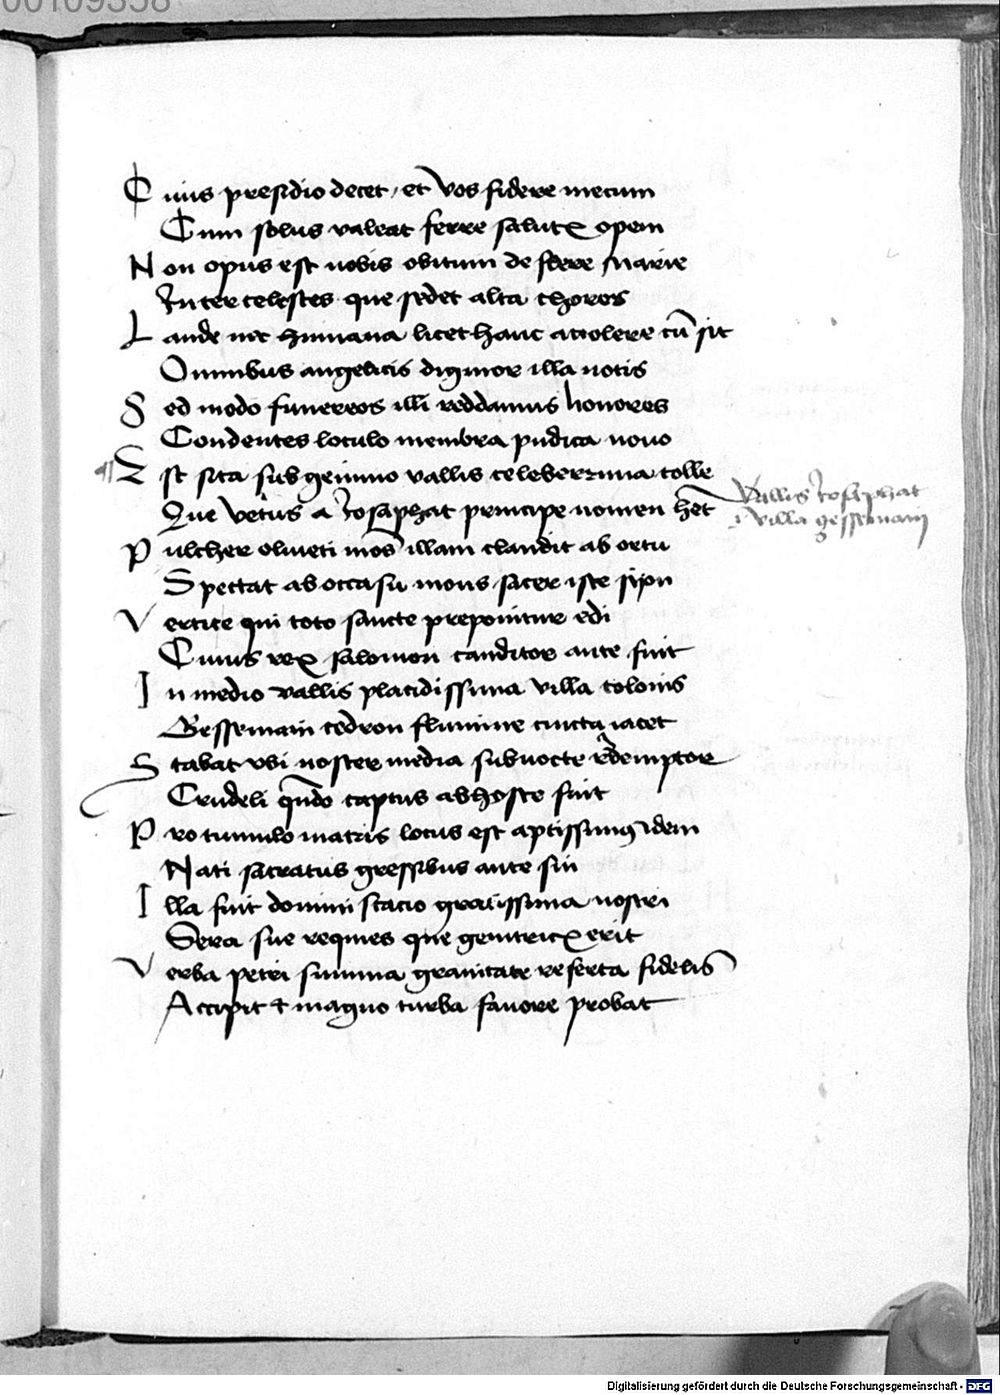 00109358
Cuius presidio decet, et vos fidere mecum
Cum solus valeat ferre salutꝭ opem
Non opus est nobis obitum deflere marie
Inter celestes que sedet alta choros
Laude nec humana licet hanc attolere cū sit
Omnibus angelicis dignior illa notis
Sed modo funereos illi reddamus honores
Condentes loculo membra pudica nouo
¶ Est sita sub gemino vallis celeberrima colle
Que vetus a Iosaphat principe nomen hēt
Vallis Iosaphat
villa gessemani
Pulcher oliueti mos illam claudit ab ortu
Spectat ab occasu mons sacer iste sijon
Vertice qui toto sancte preponitur edi
Cuius rex salomon conditor ante fuit
In medio vallis placidissima villa colonis
Gessemani cedron flumine cincta iacet
Stabat vbi noster media sub nocte redemptor
Crudeli qn̄do captus ab hoste fuit
Pro tumulo matris locus est aptissimꝰ idem
Nati sacratus gressibus ante sui
Illa fuit domini stacio gratissima nostri
Sera sue requies que genitricꝭ erit
Verba petri summa grauitate referta fidelis
Accipit ⁊ magno turba fauore probat
Digitalisierung gefördert durch die Deutsche Forschungsgemeinschaft - DFG